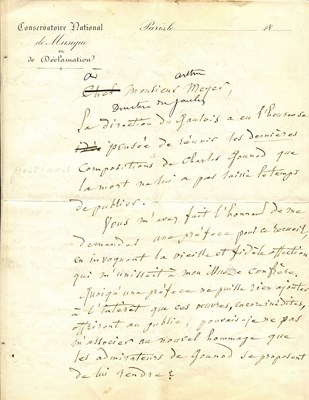 Conservatoire National
de Musique
et
de Déclamation
Paris, le 18
à arthur
Cher Monsieur Meyer,
Directeur du Gaulois
La direction du Gaulois a eu l'heureuse
pensée de réunir les dernières
Compositions de Charles Gounod que
la mort ne lui a pas laissé le temps
de publier.
Vous m'avez fait l'honneur de me
demander une préface pour ce recueil,
en invoquant la vieille et fidèle affection
qui m'unissait à mon illustre confrère.
Quoiqu'une préface ne puisse rien ajouter
à l'intérêt que ces œuvres, encore inédites,
offriront au public, pouvais-je ne pas
m'associer au nouvel hommage que
les admirateurs de Gounod se proposent
de lui rendre?